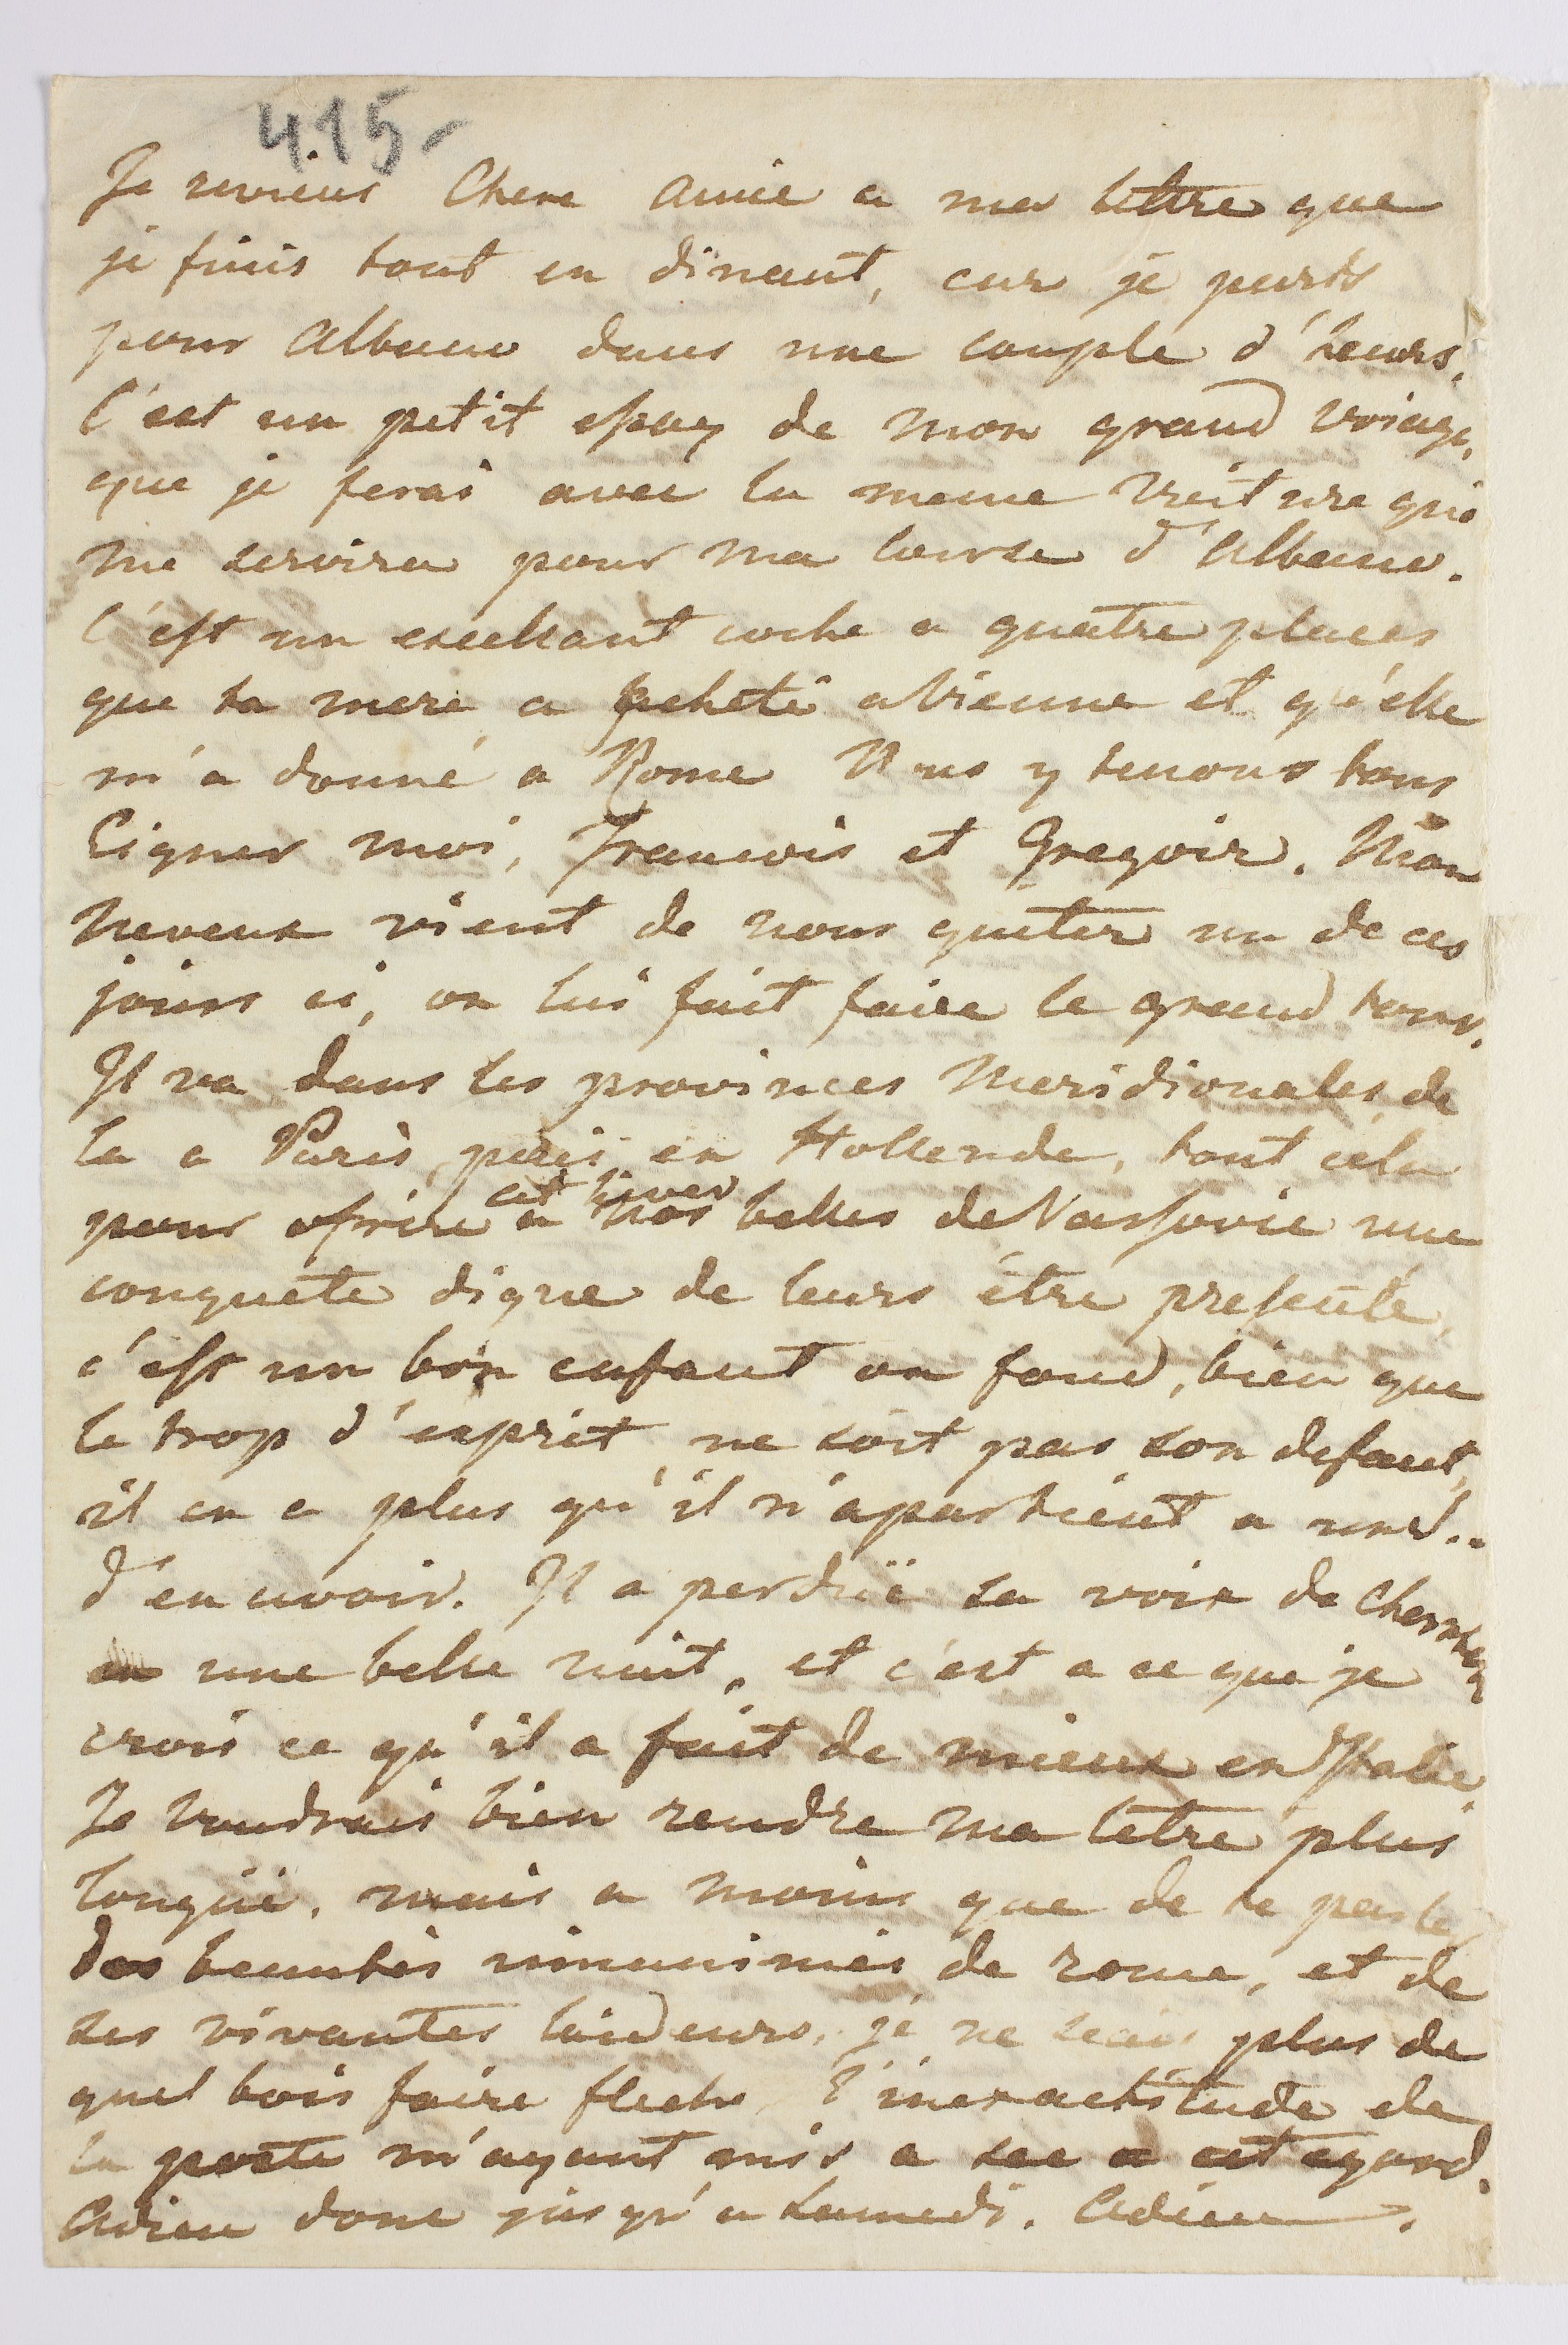 415-
Je reviens Chere Amie a ma lettre que
je finis tout en dinant, car je parts
pour Albano dans une couple d'heurs,
C'est un petit essay de mon grand voiage,
que je ferai avec la meme voiture qui
me servira pour ma course d'Albano.
C'est un excellant coche a quatre places
que ta mere a acheté a Vienne et qu'elle
m'a donné a Rome Nous y tenons tous
Cigner moi, Francois et Gregoir. Mon
neveux vient de nous quiter un de ces
jours ci, on lui fait faire le grand tour.
Il va dans les provinces Meridionales, de
la a Paris, puis en Hollende, tout cela
cet hiver
pour ofrire a nos belles de Varsovie une
conquete digne de leurs être presenté,
c'est un bon enfant au fond, bien que
le trop d'esprit ne soit pas son defaut,
il en a plus qu'il n'apartient a un J..
d'en avoir. Il a perduë sa voix de
une belle nuit, et c'est a ce que je
crois ce qu'il a fait de mieux en Italie.
Je voudrais bien rendre ma letre plus
longüe, mais a moins que de te parler
des beautés inanimés de rome, et de
ses vivantes laideurs, je ne scais plus de
quel bois faire fleche, l'inexactitude de
la poste m'ayant mis a sec a cet egard.
Adieu donc jusqu'a samedi. Adieu.